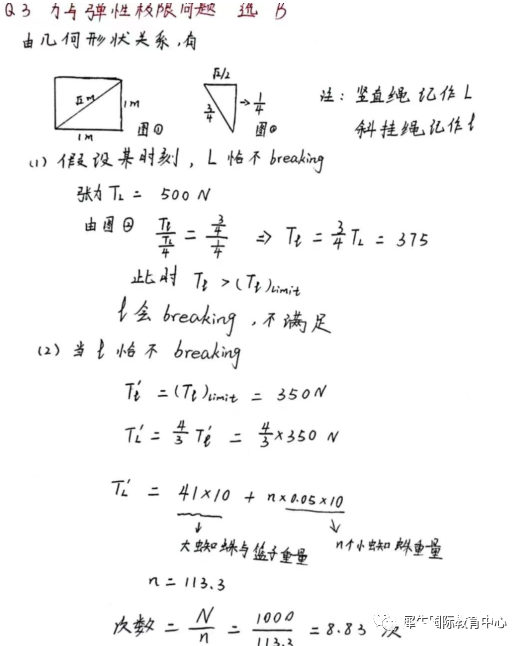 Q3 力与弹性极限问题 选 B
由几何形状关系,有
√2m
1m
1m
图①
√2/2
3/4
→ 1/4
图②
注: 竖直绳记作 L
斜挂绳记作 l
(1) 假设某时刻, L 恰不 breaking
张力 T_L = 500 N
由图② T_l / (T_L/4) = (3/4) / (1/4) ⇒ T_l = 3/4 T_L = 375
此时 T_l > (T_l)limit
l 会 breaking, 不满足
(2) 当 l 恰不 breaking
T_l' = (T_l)limit = 350 N
T_L' = 4/3 T_l' = 4/3 × 350 N
T_L' = 41×10 + n×0.05×10
大蜘蛛与篮子重量
n个小蜘蛛重量
n = 113.3
次数 = N/n = 1000/113.3 = 8.83 次
犀牛国际教育中心